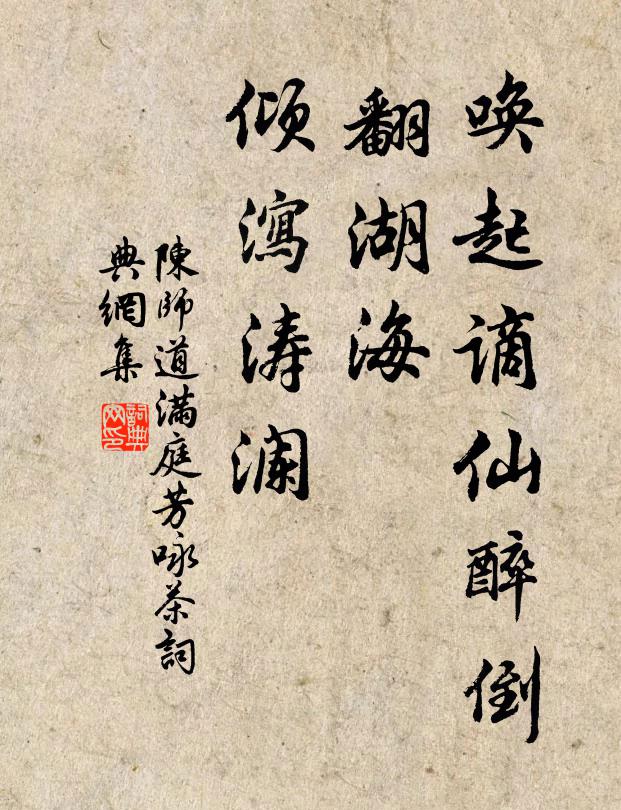 唤起谪仙醉倒
翻湖海
倾泻涛澜
陳師道滿庭芳咏茶詞
典網集
詞典网印